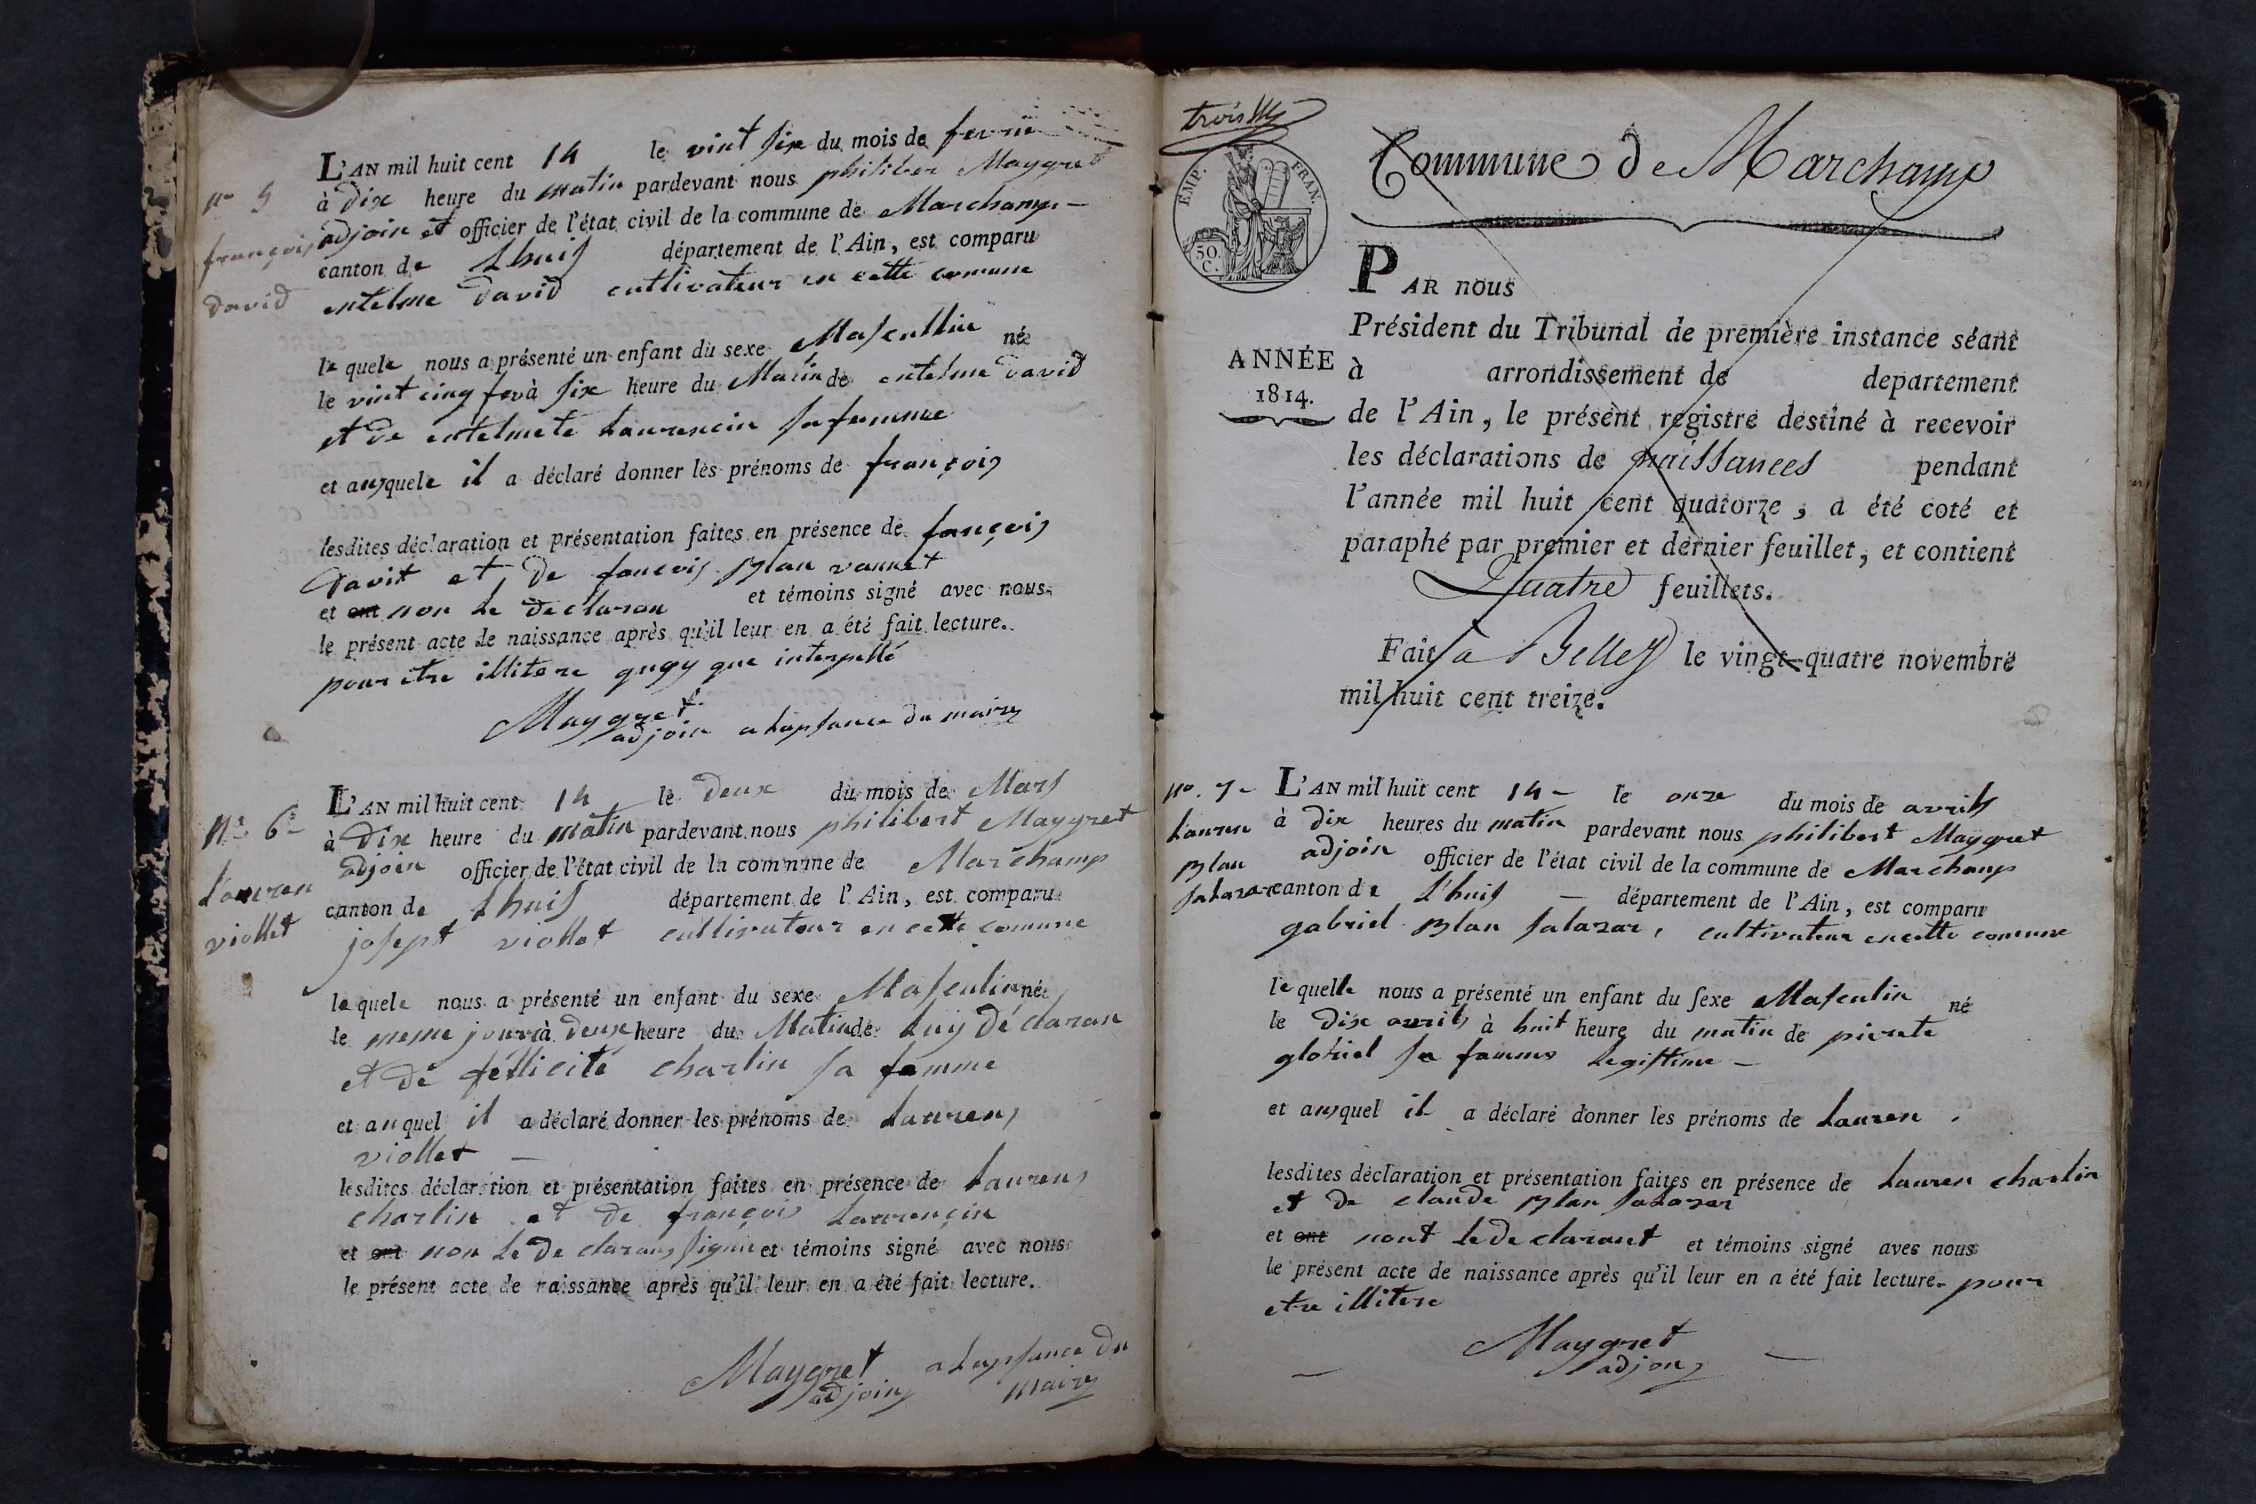 L'AN mil huit cent 14 le vint six du mois de fevrie
à dix heure du matin pardevant nous philiber Maygret
adjoin et officier de l'état civil de la commune de Marchamp
canton de Lhuis département de l'Ain, est comparu
entelme david cultivateur en cette comune
le quele nous a présenté un enfant du sexe Masculin né
le vint cinq fev à six heure du Matin de entelme david
et de entelmete Laurencin sa femme
et auquele il a déclaré donner les prénoms de françois
lesdites déclaration et présentation faites en présence de françois
davit et de francois Blan vannet
et ont non le declaran et témoins signé avec nous
le présent acte de naissance après qu'il leur en a été fait lecture.
pour etre illitere que interpellé
Maygret
adjoin a lapsance du mairy
n° 5
françois
david
L'AN mil huit cent 14 le deux du mois de Mars
à dix heure du matin pardevant nous philibert Maygret
adjoin officier de l'état civil de la commune de Marchamp
canton de Lhuis département de l'Ain, est comparu
josept viollet cultivateur en cette comune
le quele nous a présenté un enfant du sexe Masculin né
le meme jour à deux heure du Matin de luy déclaran
et de féllicité charlin sa femme
et au quel il a déclaré donner les prénoms de Lauren
viollet
lesdites déclaration et présentation faites en présence de Lauren
charlin et de françois Laurençin
et ont non le de claran signé et témoins signé avec nous
le présent acte de naissance après qu'il leur en a été fait lecture.
Maygret a lapsance du
adjoin mairy
N° 6
Lauren
viollet
trois
EMP. FRAN.
50. C.
Commune de Marchamp
PAR nous
Président du Tribunal de première instance séant
à arrondissement de departement
de l'Ain, le présent registre destiné à recevoir
les déclarations de naissances pendant
l'année mil huit cent quatorze, a été coté et
paraphé par premier et dernier feuillet, et contient
Quatre feuillets.
Fait a Belley le vingt-quatre novembre
mil huit cent treize.
ANNÉE
1814.
n° . 7
Lauren
Blan
salazar
L'AN mil huit cent 14 le onze du mois de avrils
à dix heures du matin pardevant nous philibert Maygret
adjoin officier de l'état civil de la commune de Marchamp
canton de L'huis département de l'Ain, est comparu
gabriel Blan salazar, cultivateur en cette comune
le quelle nous a présenté un enfant du sexe Masculin né
le dix avrils à huit heure du matin de pierete
globiel sa famme legistime
et auquel il a déclaré donner les prénoms de Lauren
lesdites déclaration et présentation faites en présence de Lauren charlin
et de claude Blan salazar
et ont nont le de clarant et témoins signé avec nous
le présent acte de naissance après qu'il leur en a été fait lecture. pour
etre illitere
Maygret
adjon